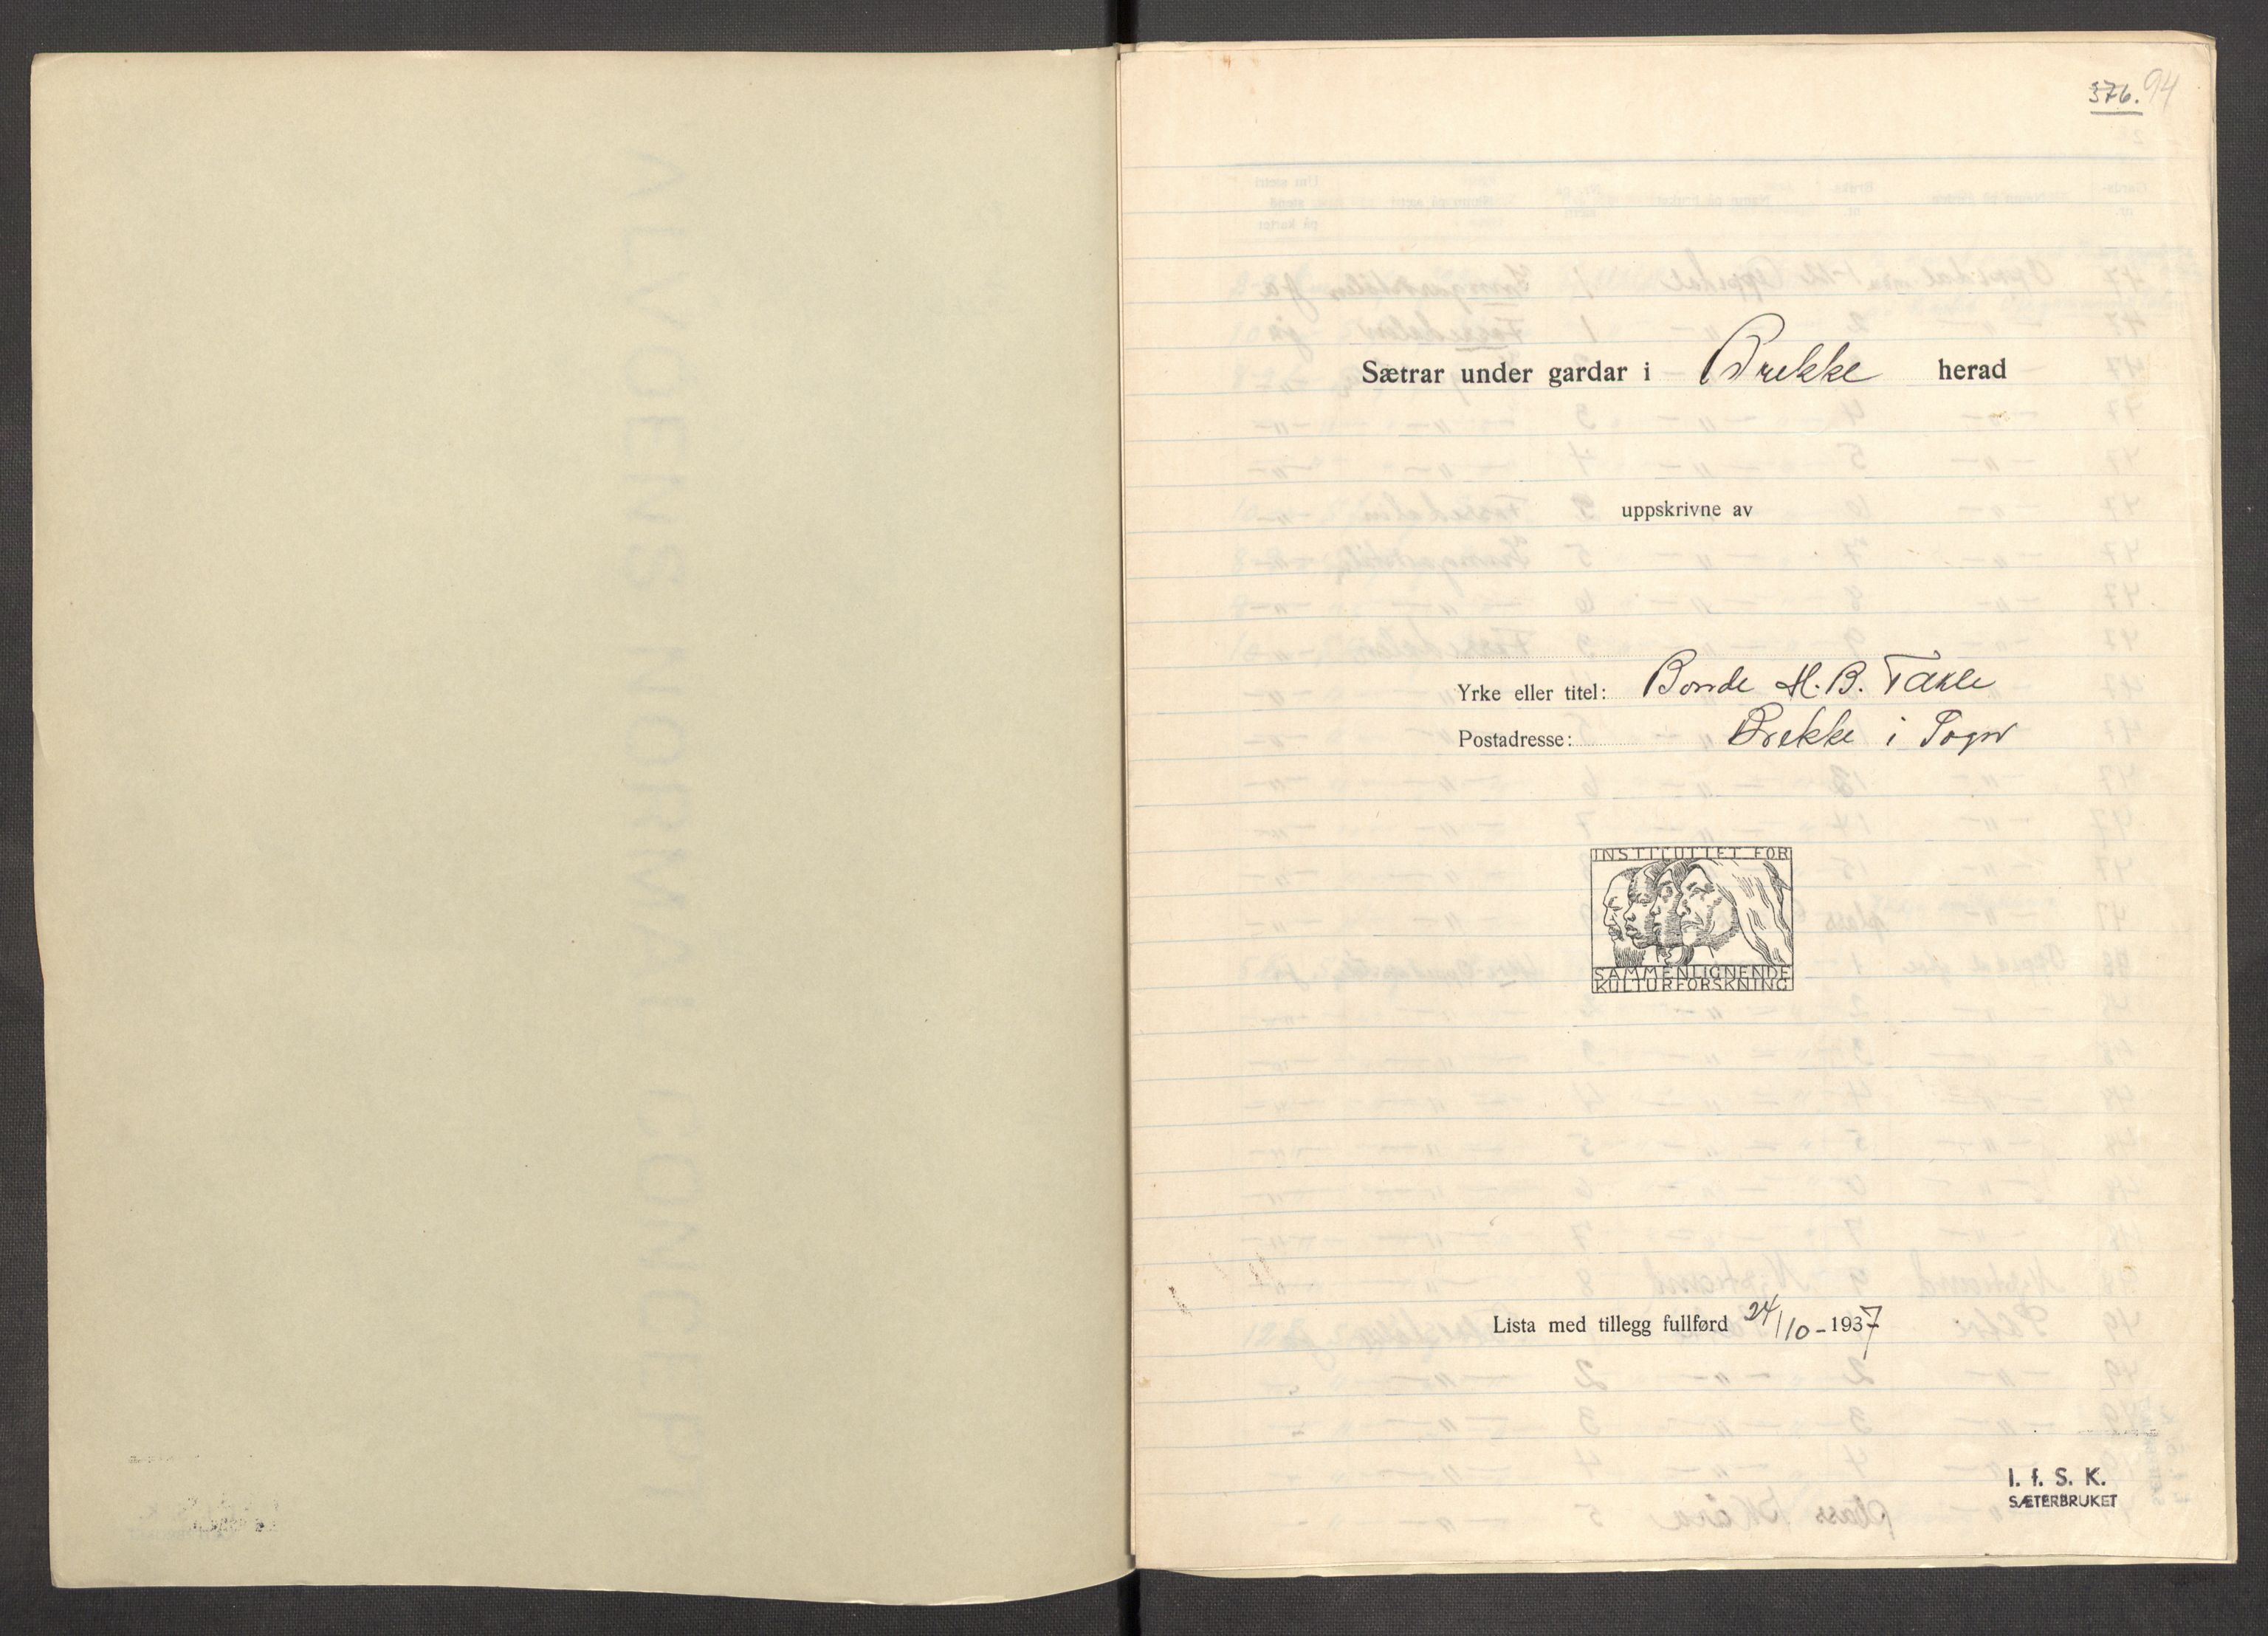 376. 94
Sætrar under gardar i Brekke herad
uppskrivne av
Yrke eller titel: Bonde H. B. Takle
Postadresse: Brekke i Sogn
INSTITUTTET FOR
SAMMENLIGNENDE
KULTURFORSKNING
Lista med tillegg fullførd 24/10-1937
I. f. S. K.
SÆTERBRUKET